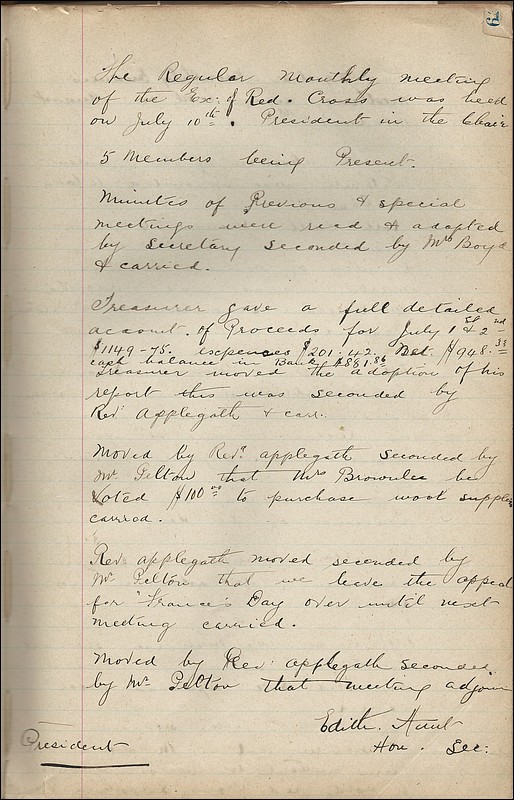 6
The Regular Monthly meeting
of the Ex: of Red. Cross was heed
on July 10th. President in the Chair
5 Members being Present.
Minutes of Previous & special
meetings were read & adopted
by Secretary seconded by Mrs Boyd
& carried.
Treasurer gave a full detailed
account of Proceeds for July 1st & 2nd
$1149-75. expenses $201.42. Net. $948.33
cash balance in Bank $881.36
Treasurer moved the adoption of his
report this was seconded by
Rev. Applegath & carr.
Moved by Revd. applegath seconded by
Mr. Pelton that Mrs Brownlee be
Voted $100.00 to purchase wool supplies
carried.
Rev. applegath moved seconded by
Mr Pelton that we leave the appeal
for "France's Day over until next
meeting carried.
Moved by Rev. applegath seconded
by Mr. Pelton that meeting adjourn
Edith.
Hon. Sec:
President